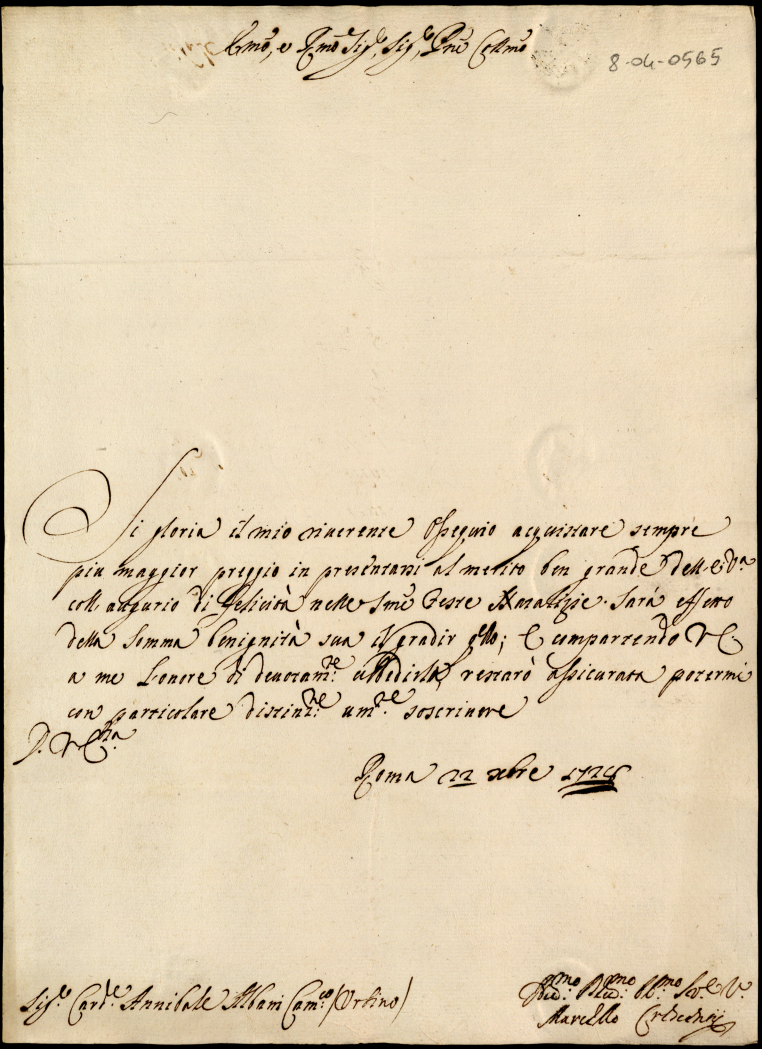 Emo, e Rmo Sig.e, Sig.e, Pne Collmo
8-04-0565
Si gloria il mio riuerente Ossequio acquistare sempre
piu maggior preggio in presentarsi al merito ben grande dell' E: Va
coll augurio di Felicità nelle Sme Feste Natalizie. Sarà effetto
della somma benignità sua il gradir
a me l'onore di deuotamte ubbidirla, restarò assicurata potermi
con particolare distinzne umte soscriuere
D. V Eza
Roma 22 Xbre
Sig.e Card.e Annibale Albani Cam.o (Urbino)
Marcello